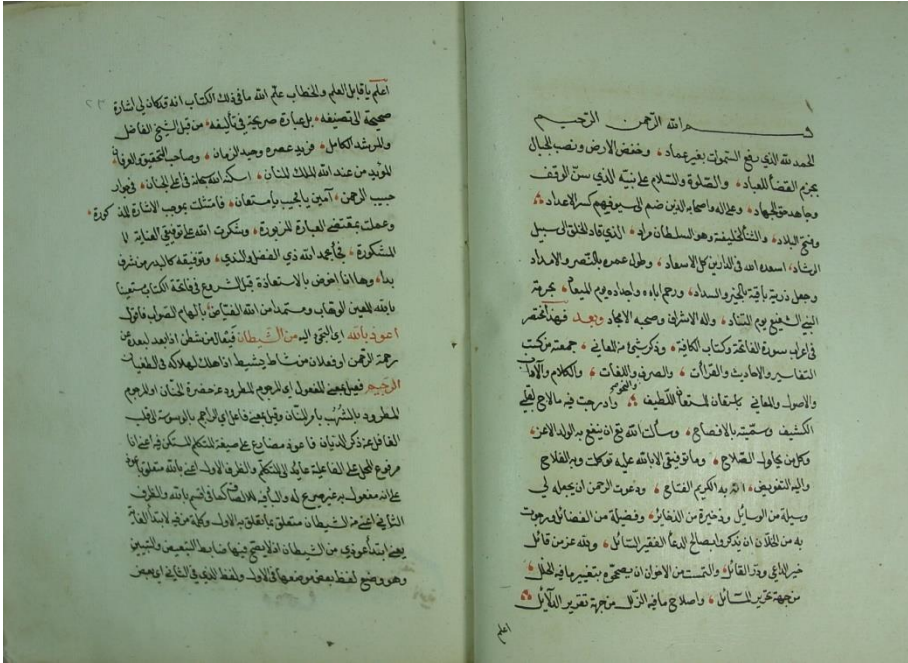 بسم الله الرحمن الرحيم
الحمد لله الذي رفع السموات بغير عماد وخفض الارض ونصب الجبال
بجزم القضا للعباد والصلوة والسلام على نبيه الذي سن الوقف
وجاهد حق الجهاد وعلى اله واصحابه الذين ضم الى سيوفهم كسر الاعداد
وفتح البلاد والثنا لخليفة وهو السلطان مراد الذي قاد الخلق الى سبيل
الرشاد اسعده الله في الدارين كل الاسعاد وطول عمره بالنصر والامداد
وجعل ذرية باقية بالخير والسداد ورحم اباءه واجداده يوم الميعاد بحرمة
النبي الشفيع يوم التناد واله الاشراف وصحبه الامجاد وبعد فهذا مختصر
في اعراب سورة الفاتحة وكتاب الكافية وذكر شئ من المعاني جمعته من كتب
التفاسير والاحاديث والقراآت والصرف واللغات والكلام والآداب
والاصول والمعاني والنحو باستعان المستعان اللطيف وادرجت فيه ما لاح لقلبي
الكشيف وسميته بالافصاح وسألت الله تع ان ينفع به الولد الاعز
وكل من يحاول الصلاح وما توفيقي الا بالله عليه توكلت وبه الفلاح
واليه التفويض انه الكريم الفتاح ودعوت الرحمن ان يجعله لي
وسيلة من الوسائل وذخيرة من الذخاير وفضيلة من الفضائل ورجوت
به من الخلان ان يذكروا بصالح الدعا الفقير السائل ولله عز من قائل
خير الداعي ودر القائل والتمست من الاخوان ان يصححوه بتغيير ما فيه الخلل
من جهة تحرير المسائل واصلاح ما فيه الزلل من جهة تقرير الدلايل
اعلم
٢٣
اعلم يا قابل العلم والخطاب علم الله ما في ذلك الكتاب انه قد كان لي اشارة
صحيحة الى تصنيفه بل عبارة صريحة في تأليفه من قبل الشيخ الفاضل
والمرشد الكامل فريد عصره وحيد الزمان وصاحب التحقيق والعرفان
المؤيد من عند الله الملك المنان اسكنه الله في اعلى الجنان في جوار
حبيب الرحمن آمين يا مجيب يا مستعان فامتثلت بموجب الاشارة المذكورة
وعملت بمقتضى العبارة المزبورة وشكرت الله على توفيقي العناية لا
المشكورة فجاء بحمد الله ذي الفضل والندى وتوفيقه كالبدر من شرف
بدا وها انا اخوض بالاستعاذة قبل الشروع في فاتحة الكتاب مستعينا
بالله المعين الوهاب ومستمدا من الله الفياض بالهام الصواب فاقول
اعوذ بالله اى التجئ اليه من الشيطان فيعال من شطن اذا بعد لبعده عن
رحمة الرحمن او فعلان من شاط يشيط اذا هلك لهلاكه في الطغيان
الرجيم فعيل بمعنى المفعول اى المرجوم المطرود عن حضرة الحنان او المرجوم
المطرود بالشهب بامر المنان وقيل بمعنى فاعل اى الراجم بالوسوسة لقلب
الغافل عن ذكر الديان فاعوذ مضارع على صيغة المتكلم المستكن فيه اعنى انا
مرفوع المحل على الفاعلية عايد الى المتكلم والظرف الاول اعنى بالله متعلق باعوذ
على انه مفعول به غير صريح له والباء فيه للالصاق كما في اقسم بالله والظرف
الثاني اعنى من الشيطان متعلق بما تعلق به الاول وكلمة من فيه لابتدأ الغاية
يعنى ابتدأ عوذي من الشيطان اذ لا يصح فيها ضابط التبعيض والتبيين
وهو وضع لفظ بعض موضعها في الاول ولفظ الذي في الثاني اى بعض